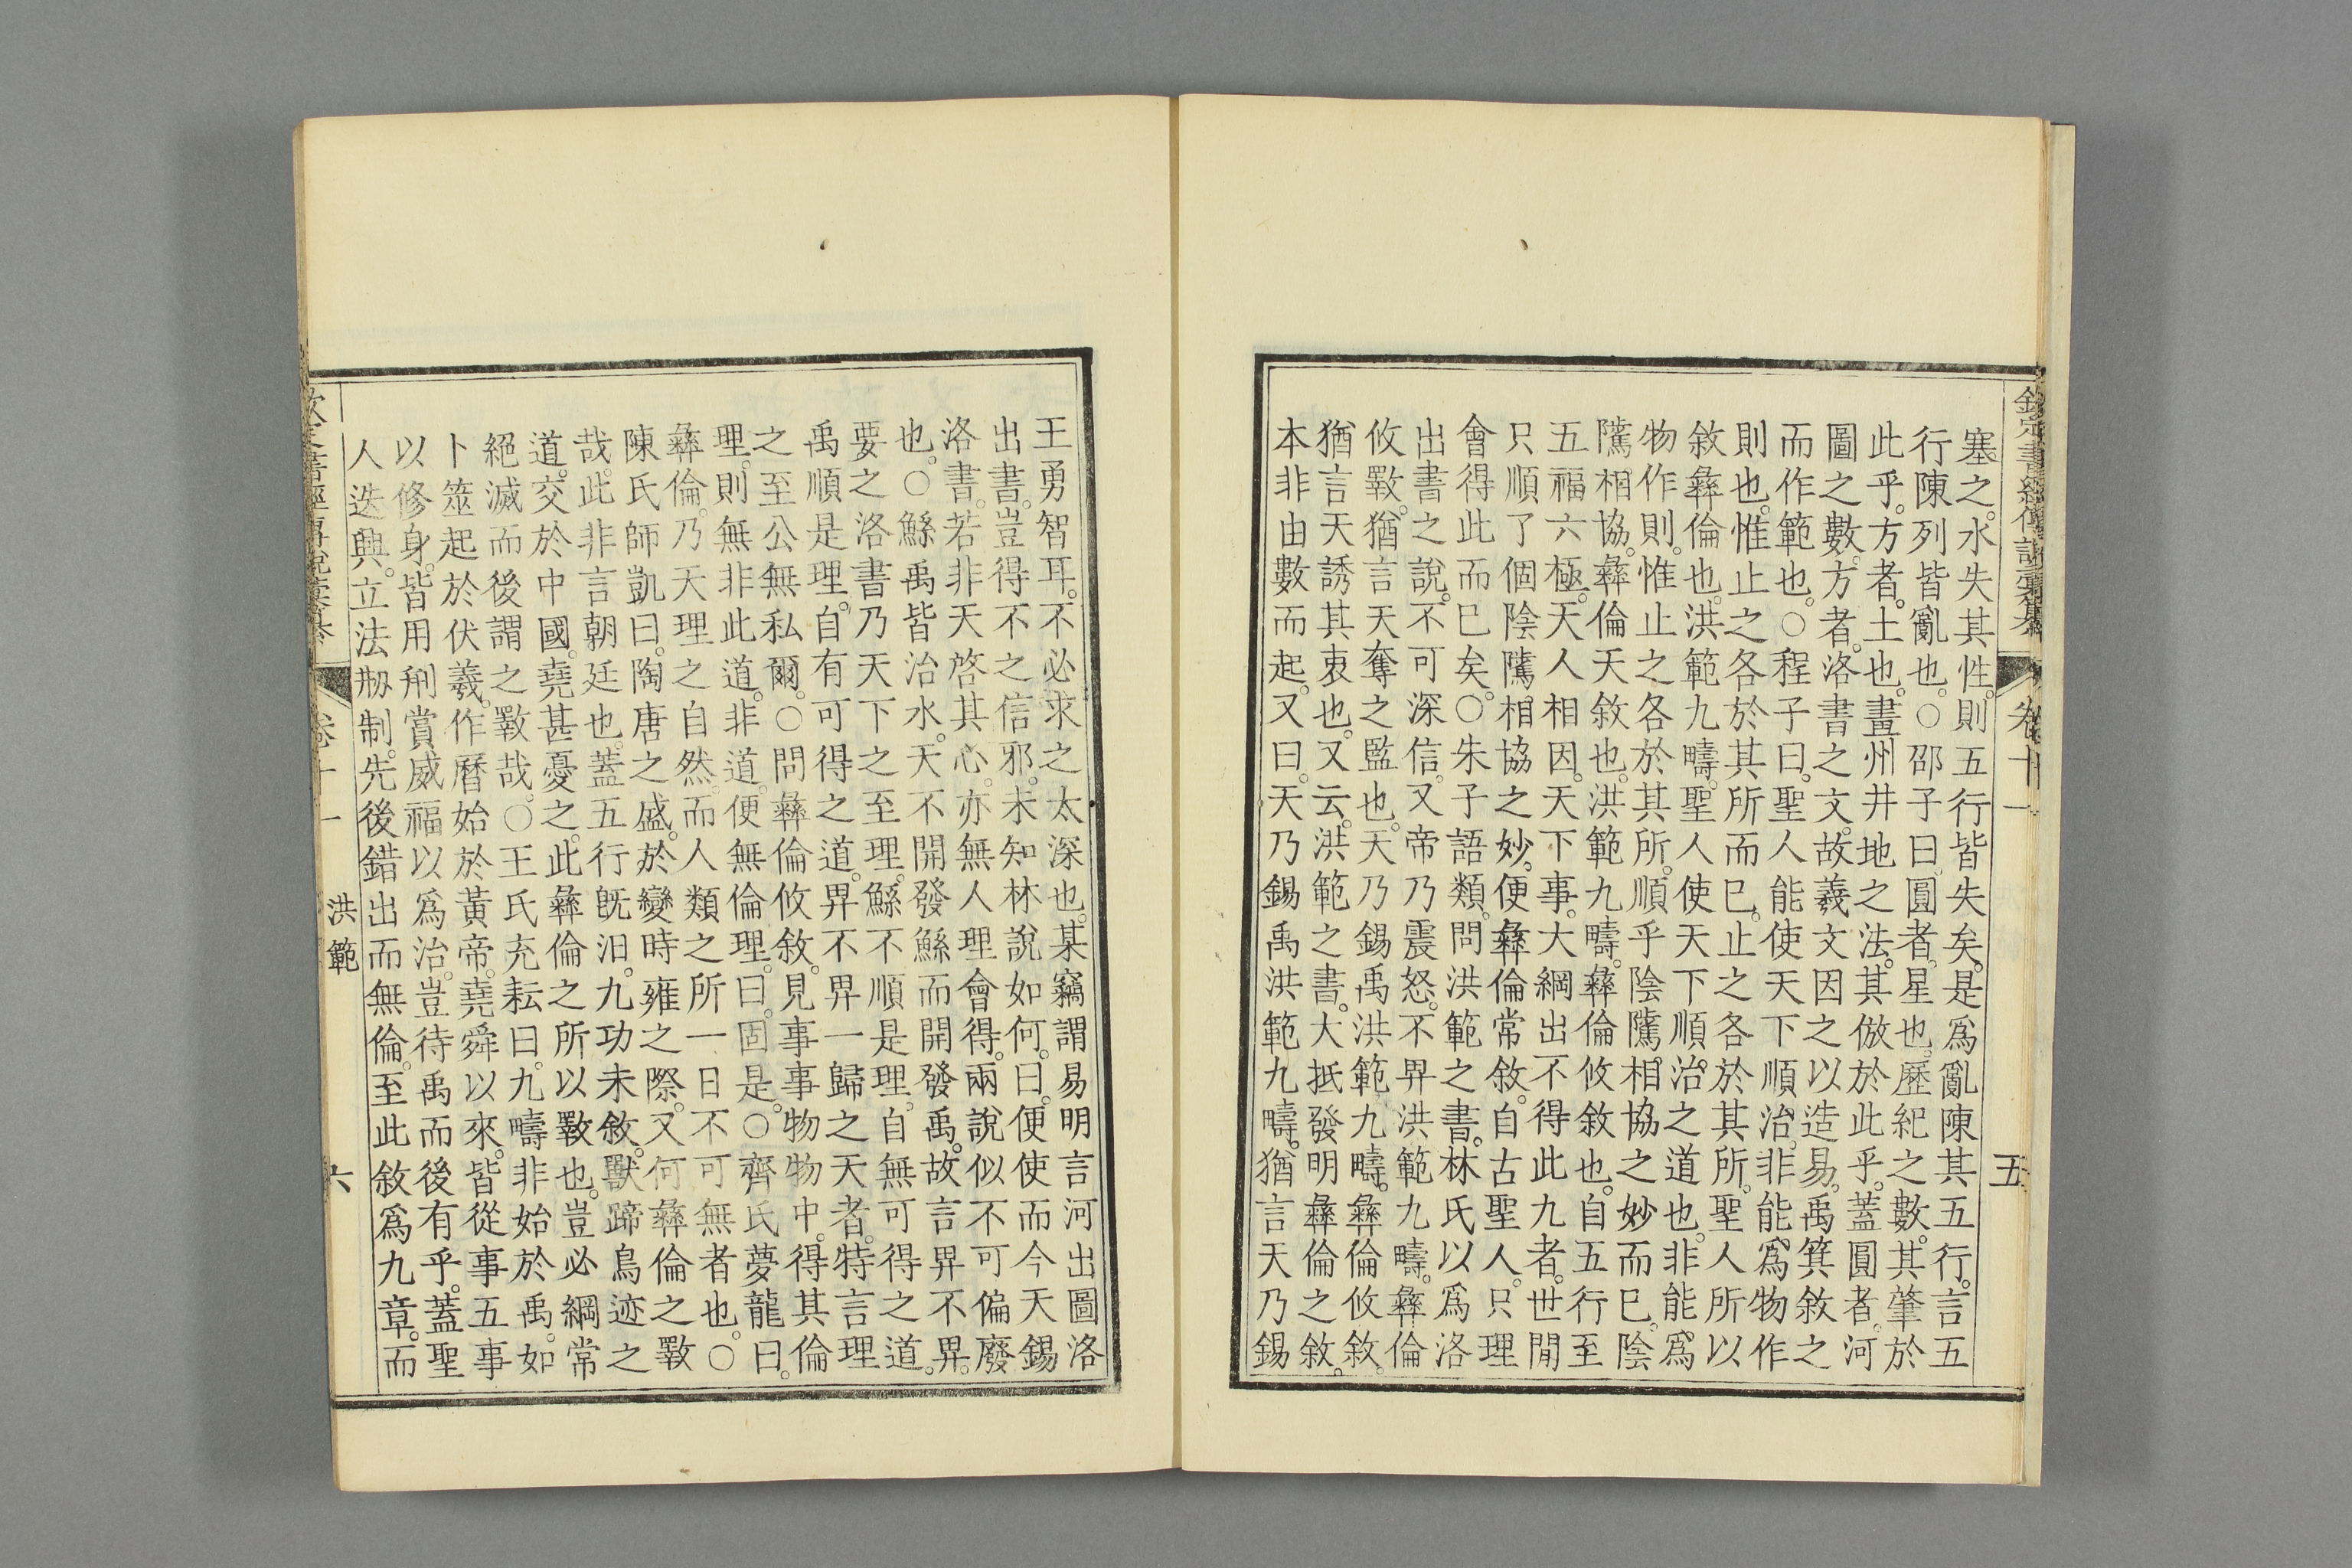 欽定書經傳說彙纂 卷十一 五
塞之。水失其性。則五行皆失矣。是爲亂陳其五行。言五
行陳列皆亂也。○邵子曰。圓者。星也。歷紀之數。其肇於
此乎。方者。土也。畫州井地之法。其倣於此乎。蓋圓者。河
圖之數。方者。洛書之文。故羲文因之以造易。禹箕敘之
而作範也。○程子曰。聖人能使天下順治。非能爲物作
則也。惟止之各於其所而已。止之各於其所。聖人所以
敘彝倫也。洪範九疇。聖人使天下順治之道也。非能爲
物作則。惟止之各於其所。順乎陰隲相協之妙而已。陰
隲相協。彝倫天敘也。洪範九疇。彝倫攸敘也。自五行至
五福六極。天人相因。天下事。大綱出不得此九者。世閒
只順了個陰隲相協之妙。便彝倫常敘。自古聖人。只理
會得此而已矣。○朱子語類。問洪範之書。林氏以爲洛
出書之說。不可深信。又帝乃震怒。不畀洪範九疇。彝倫
攸斁。猶言天奪之監也。天乃錫禹洪範九疇。彝倫攸敘。
猶言天誘其衷也。又云。洪範之書。大抵發明彝倫之敘。
本非由數而起。又曰。天乃錫禹洪範九疇。猶言天乃錫
王勇智耳。不必求之太深也。某竊謂易明言河出圖洛
出書。豈得不之信邪。未知林說如何。曰。便使而今天錫
洛書。若非天啓其心。亦無人理會得。兩說似不可偏廢
也。○鯀禹皆治水。天不開發鯀而開發禹。故言畀不畀。
要之洛書乃天下之至理。鯀不順是理。自無可得之道。
禹順是理。自有可得之道。畀不畀一歸之天者。特言理
之至公無私爾。○問彝倫攸敘。見事事物物中。得其倫
理。則無非此道。非道。便無倫理。曰。固是。○齊氏夢龍曰。
彝倫。乃天理之自然。而人類之所一日不可無者也。○
陳氏師凱曰。陶唐之盛。於變時雍之際。又何彝倫之斁
哉。此非言朝廷也。蓋五行旣汨。九功未敘。獸蹄鳥迹之
道。交於中國。堯甚憂之。此彝倫之所以斁也。豈必綱常
絕滅而後謂之斁哉。○王氏充耘曰。九疇非始於禹。如
卜筮起於伏羲。作曆始於黃帝。堯舜以來。皆從事五事
以修身。皆用刑賞威福以爲治。豈待禹而後有乎。蓋聖
人迭興。立法刱制。先後錯出而無倫。至此敘爲九章。而
卷十一 洪範 六